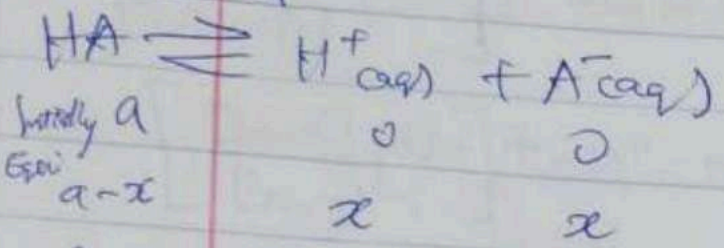 HA ⇌ H⁺(aq) + A⁻(aq)
Initially a 0 0
Equi a-x x x